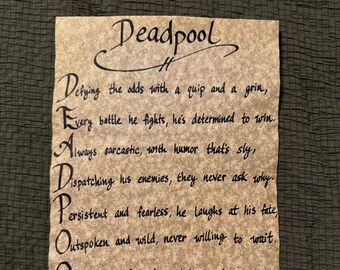 Deadpool
Defying the odds with a quip and a grin,
Every battle he fights, he's determined to win.
Always sarcastic, with humor that's sly,
Dispatching his enemies, they never ask why.
Persistent and fearless, he laughs at his fate,
Outspoken and wild, never willing to wait.
O